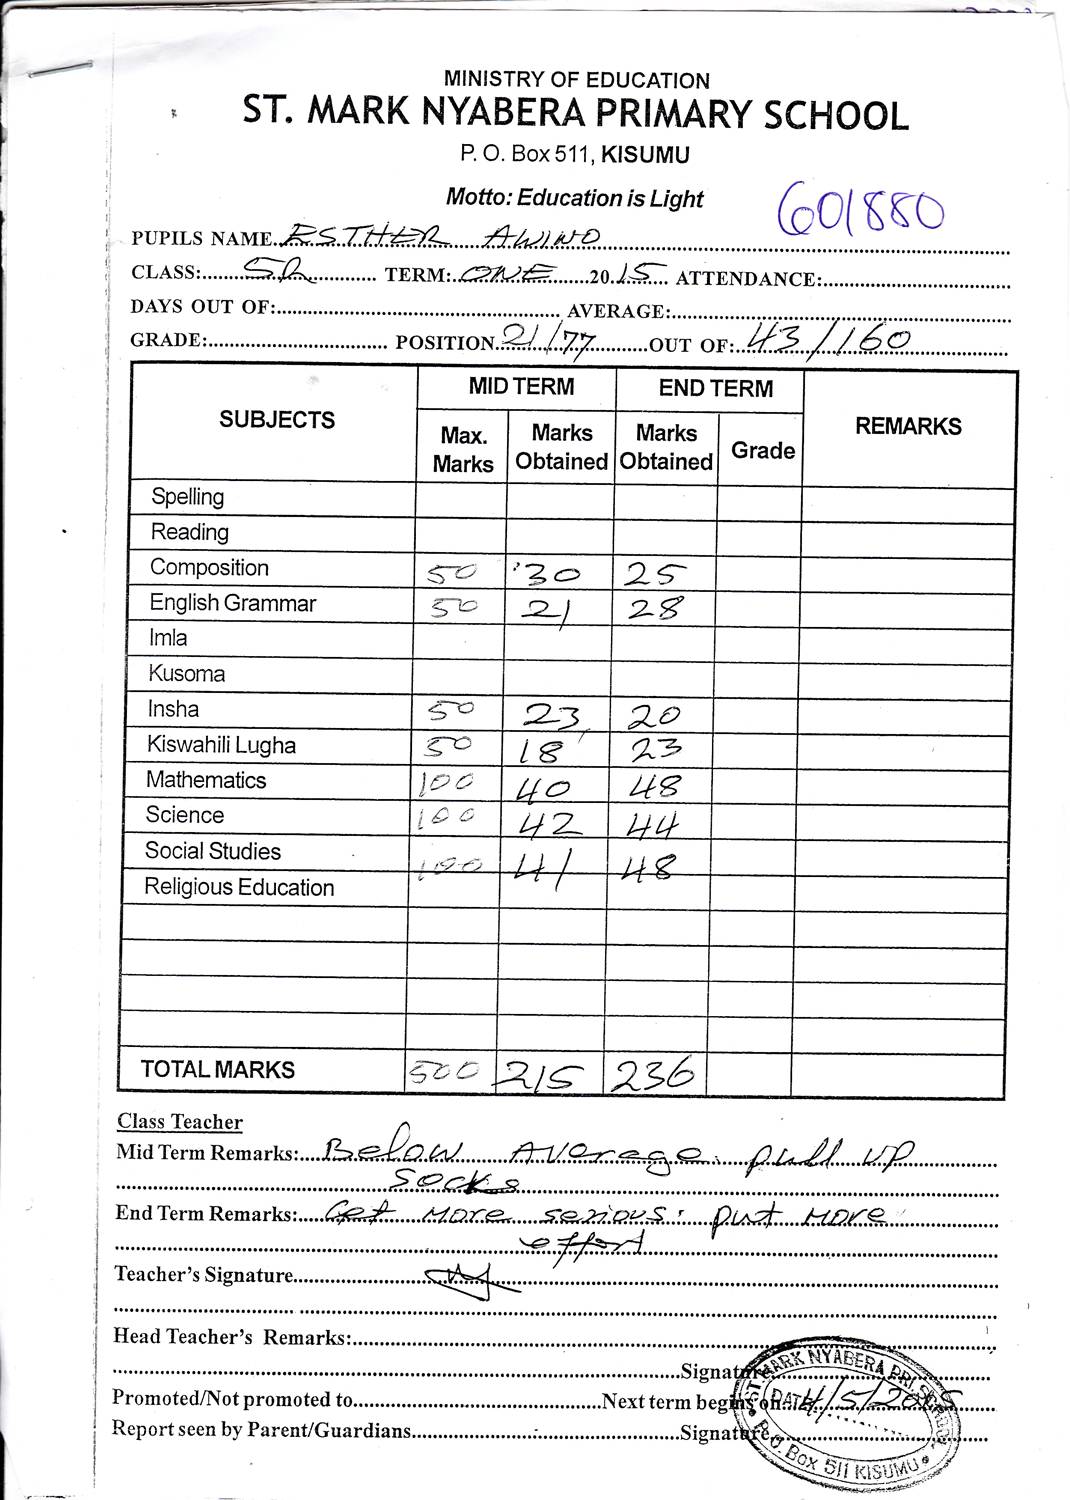 MINISTRY OF EDUCATION
ST. MARK NYABERA PRIMARY SCHOOL
P. O. Box 511, KISUMU
Motto: Education is Light
601880
PUPILS NAME ESTHER AWINO
CLASS: 5R TERM: ONE 2015 ATTENDANCE:
DAYS OUT OF: AVERAGE:
GRADE: POSITION 21/77 OUT OF: 43/160
SUBJECTS MID TERM END TERM REMARKS
Max. Marks Marks Obtained Marks Obtained Grade
Spelling
Reading
Composition 50 30 25
English Grammar 50 21 28
Imla
Kusoma
Insha 50 23 20
Kiswahili Lugha 50 18 23
Mathematics 100 40 48
Science 100 42 44
Social Studies 100 41 48
Religious Education
TOTAL MARKS 500 215 236
Class Teacher
Mid Term Remarks: Below Average. pull up
socks
End Term Remarks: Get more serious. put more
effort
Teacher's Signature
Head Teacher's Remarks:
Signature
Promoted/Not promoted to Next term begins on 4/5/2015
Report seen by Parent/Guardians Signature
ST. MARK NYABERA PRI. SCHOOL
DATE
P.O. Box 511 KISUMU